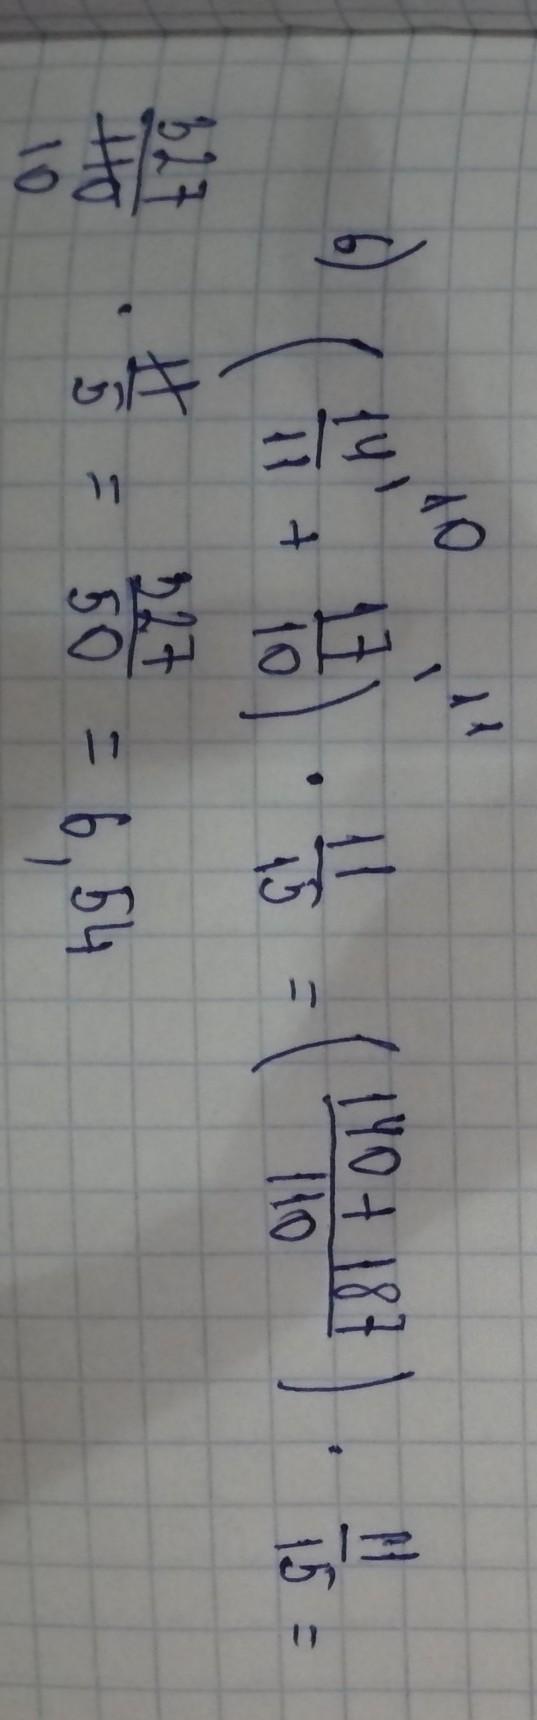 б) (14/11 + 17/10) · 11/15 = (140 + 187)/110 · 11/15 =
327/110 · 11/5 = 327/50 = 6,54